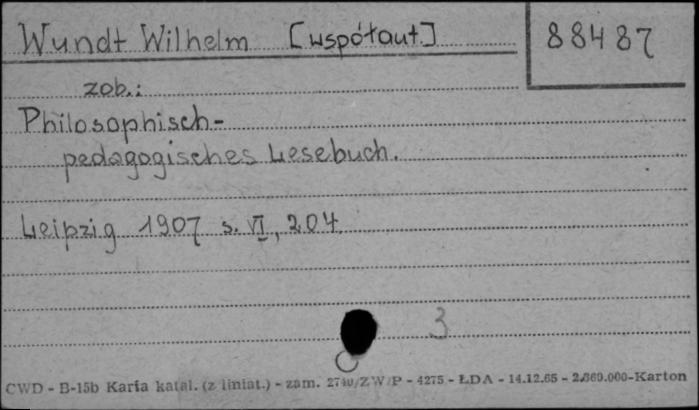 Wundt Wilhelm [współaut.] 88487
zob.:
Philosophisch-
pedagogisches Lesebuch.
Leipzig 1907 s. VI, 204.
3
CWD - B-15b Karta katal. (z liniat.) - zam. 2740/ZW/P - 4275 - ŁDA - 14.12.65 - 2.860.000-Karton